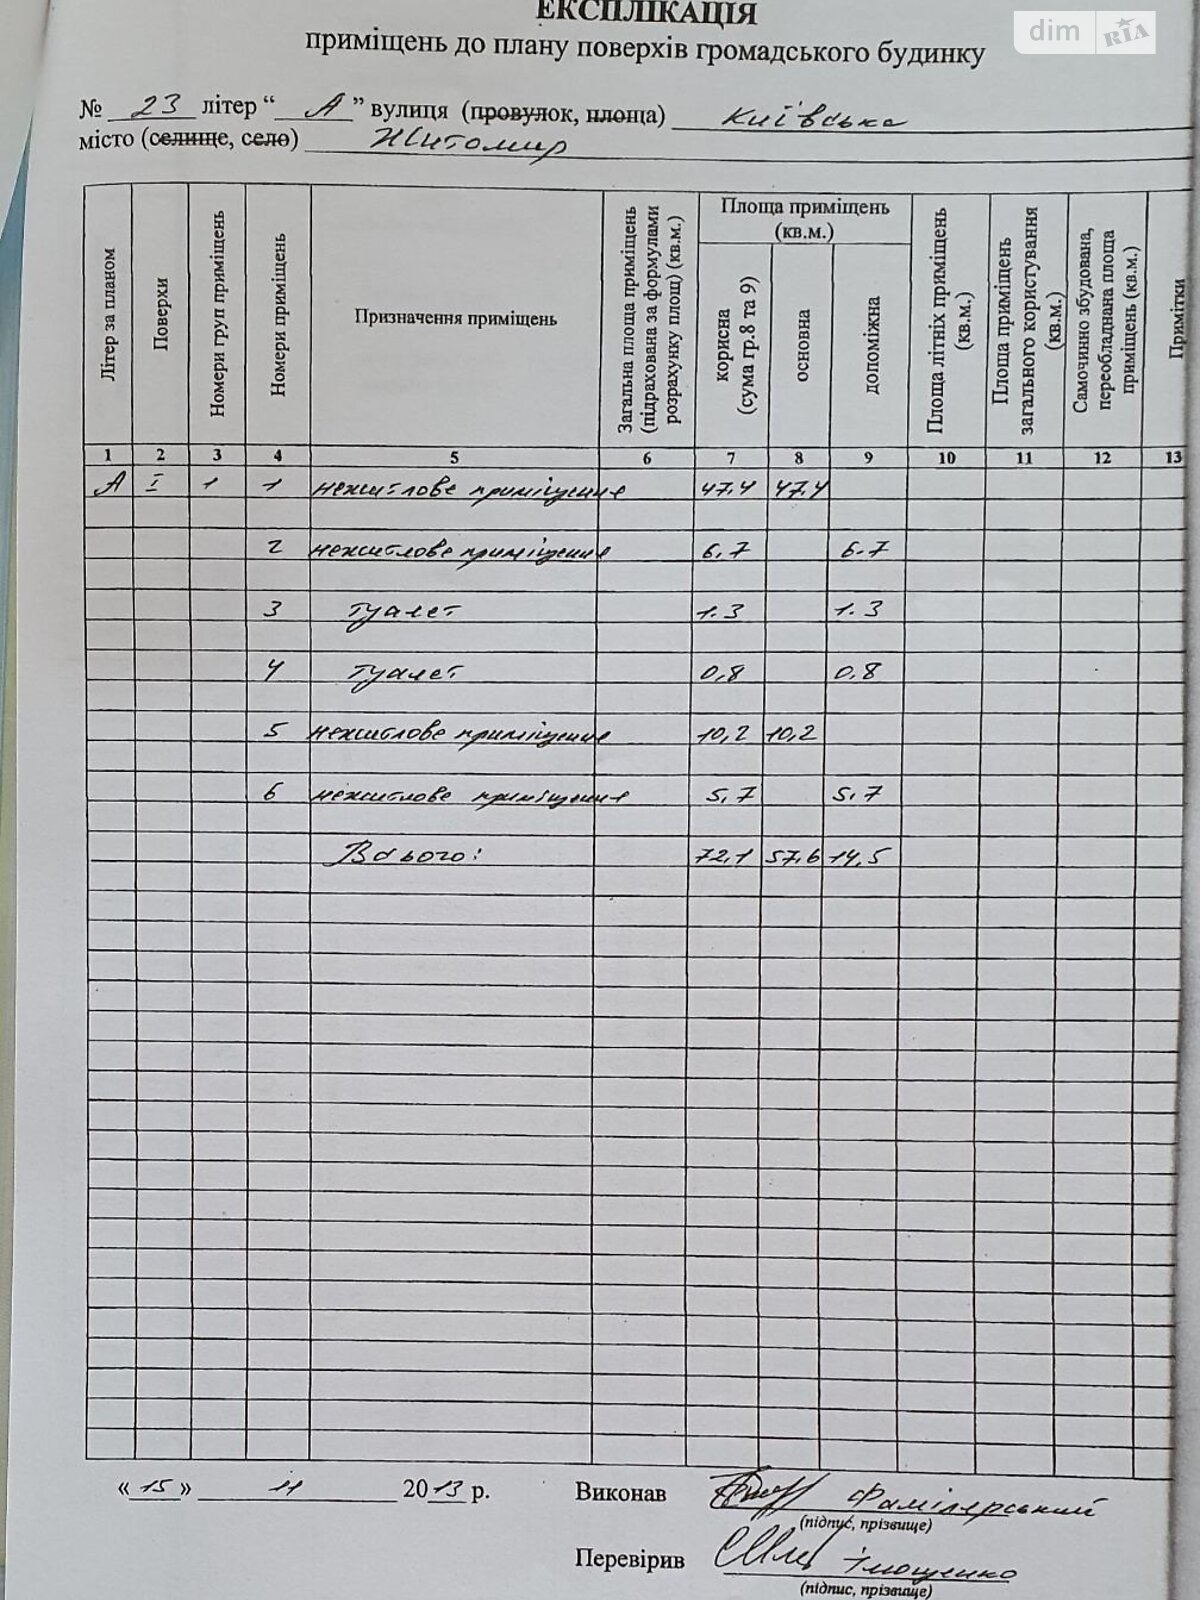 ЕКСПЛІКАЦІЯ
dim RIA
приміщень до плану поверхів громадського будинку
№ 23 літер “ А ” вулиця (провулок, площа) Київська
місто (селище, село) Житомир
Літер за планом
Поверхи
Номери груп приміщень
Номери приміщень
Призначення приміщень
Загальна площа приміщень (підрахована за формулами розрахунку площ) (кв.м.)
Площа приміщень (кв.м.)
корисна (сума гр.8 та 9)
основна
допоміжна
Площа літніх приміщень (кв.м.)
Площа приміщень загального користування (кв.м.)
Самочинно збудована, переобладнана площа приміщень (кв.м.)
Примітки
1 2 3 4 5 6 7 8 9 10 11 12 13
А I 1 1 нежитлове приміщення 47.4 47.4
2 нежитлове приміщення 6,7 6.7
3 туалет 1.3 1.3
4 туалет 0,8 0.8
5 нежитлове приміщення 10,2 10,2
6 нежитлове приміщення 5,7 5,7
Всього: 72,1 57,6 14,5
« 15 » 11 2013 р. Виконав
(підпис, прізвище)
Перевірив
(підпис, прізвище)